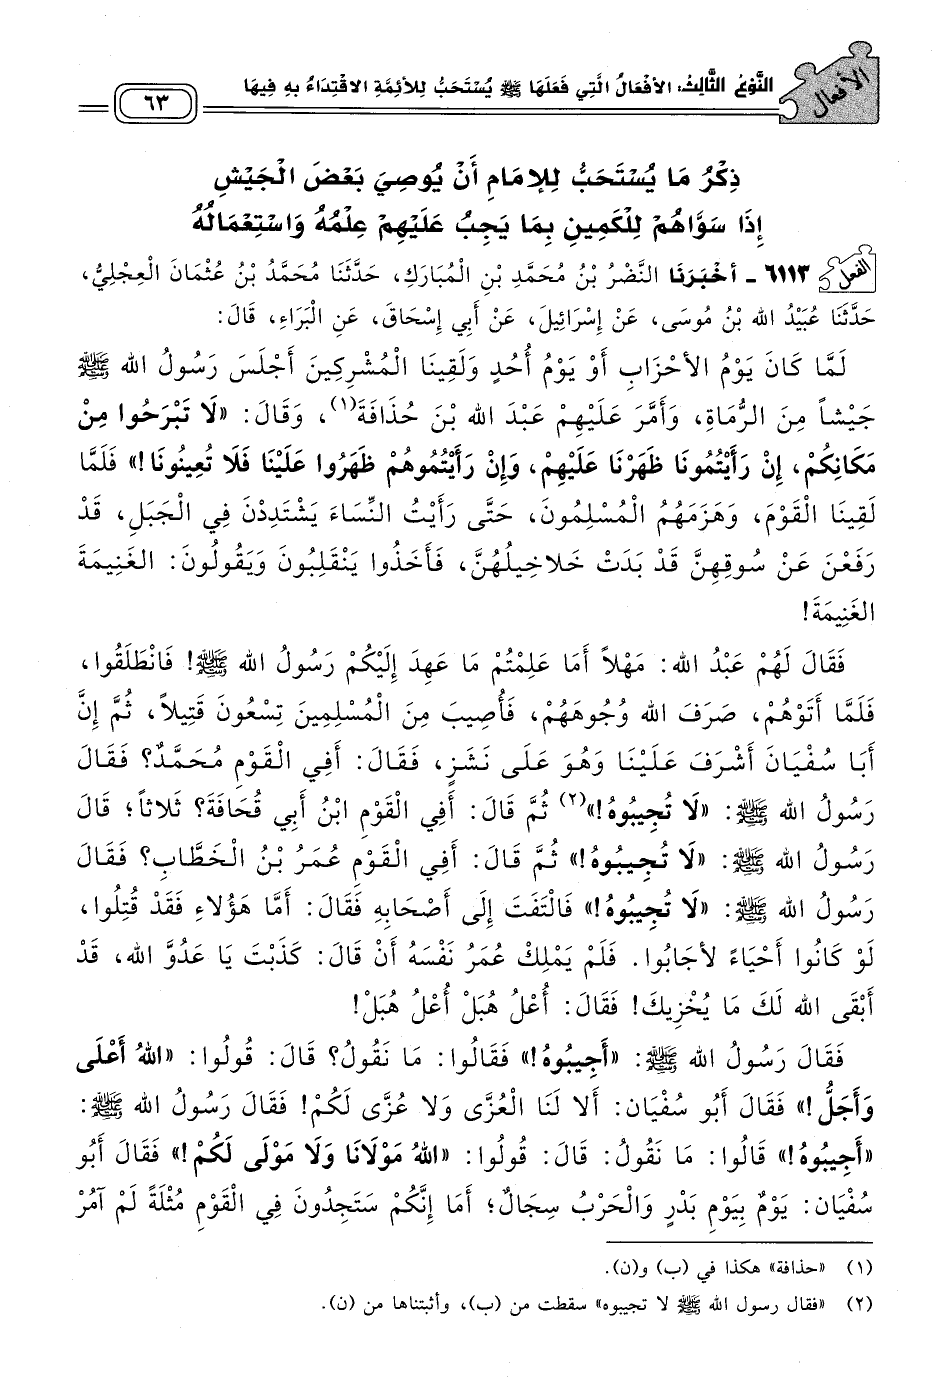 الأفعال
النَّوْعُ الثَّالِثُ: الأَفْعَالُ الَّتِي فَعَلَهَا ﷺ يُسْتَحَبُّ لِلأَئِمَّةِ الاقْتِدَاءُ بِهِ فِيهَا
٦٣
ذِكْرُ مَا يُسْتَحَبُّ لِلإمَامِ أَنْ يُوصِيَ بَعْضَ الْجَيْشِ
إِذَا سَوَّاهُمْ لِلْكَمِينِ بِمَا يَجِبُ عَلَيْهِمْ عِلْمُهُ وَاسْتِعْمَالُهُ
الفعل ٦١١٣ - أخْبَرَنَا النَّضْرُ بْنُ مُحَمَّدِ بْنِ الْمُبَارَكِ، حَدَّثَنَا مُحَمَّدُ بْنُ عُثْمَانَ الْعِجْلِيُّ،
حَدَّثَنَا عُبَيْدُ الله بْنُ مُوسَى، عَنْ إِسْرَائِيلَ، عَنْ أَبِي إِسْحَاقَ، عَنِ الْبَرَاءِ، قَالَ:
لَمَّا كَانَ يَوْمُ الأَحْزَابِ أَوْ يَوْمُ أُحُدٍ وَلَقِينَا الْمُشْرِكِينَ أَجْلَسَ رَسُولُ الله ﷺ
جَيْشاً مِنَ الرُّمَاةِ، وَأَمَّرَ عَلَيْهِمْ عَبْدَ الله بْنَ حُذَافَةَ(١)، وَقَالَ: «لَا تَبْرَحُوا مِنْ
مَكَانِكُمْ، إِنْ رَأَيْتُمُونَا ظَهَرْنَا عَلَيْهِمْ، وَإِنْ رَأَيْتُمُوهُمْ ظَهَرُوا عَلَيْنَا فَلَا تُعِينُونَا!» فَلَمَّا
لَقِينَا الْقَوْمَ، وَهَزَمَهُمُ الْمُسْلِمُونَ، حَتَّى رَأَيْتُ النِّسَاءَ يَشْتَدِدْنَ فِي الْجَبَلِ، قَدْ
رَفَعْنَ عَنْ سُوقِهِنَّ قَدْ بَدَتْ خَلَاخِيلُهُنَّ، فَأَخَذُوا يَنْقَلِبُونَ وَيَقُولُونَ: الْغَنِيمَةَ
الغَنِيمَةَ!
فَقَالَ لَهُمْ عَبْدُ الله: مَهْلاً أَمَا عَلِمْتُمْ مَا عَهِدَ إِلَيْكُمْ رَسُولُ الله ﷺ! فَانْطَلَقُوا،
فَلَمَّا أَتَوْهُمْ، صَرَفَ الله وُجُوهَهُمْ، فَأُصِيبَ مِنَ الْمُسْلِمِينَ تِسْعُونَ قَتِيلاً، ثُمَّ إِنَّ
أَبَا سُفْيَانَ أَشْرَفَ عَلَيْنَا وَهُوَ عَلَى نَشَزٍ، فَقَالَ: أَفِي الْقَوْمِ مُحَمَّدٌ؟ فَقَالَ
رَسُولُ الله ﷺ: «لَا تُجِيبُوهُ!»(٢) ثُمَّ قَالَ: أَفِي الْقَوْمِ ابْنُ أَبِي قُحَافَةَ؟ ثَلاثاً؛ قَالَ
رَسُولُ الله ﷺ: «لَا تُجِيبُوهُ!» ثُمَّ قَالَ: أَفِي الْقَوْمِ عُمَرُ بْنُ الْخَطَّابِ؟ فَقَالَ
رَسُولُ الله ﷺ: «لَا تُجِيبُوهُ!» فَالْتَفَتَ إِلَى أَصْحَابِهِ فَقَالَ: أَمَّا هَؤُلَاءِ فَقَدْ قُتِلُوا،
لَوْ كَانُوا أَحْيَاءً لأَجَابُوا. فَلَمْ يَمْلِكْ عُمَرُ نَفْسَهُ أَنْ قَالَ: كَذَبْتَ يَا عَدُوَّ الله، قَدْ
أَبْقَى الله لَكَ مَا يُخْزِيكَ! فَقَالَ: أُعْلُ هُبَلْ أُعْلُ هُبَلْ!
فَقَالَ رَسُولُ الله ﷺ: «أَجِيبُوهُ!» فَقَالُوا: مَا نَقُولُ؟ قَالَ: قُولُوا: «اللهُ أَعْلَى
وَأَجَلُّ!» فَقَالَ أَبُو سُفْيَان: أَلَا لَنَا الْعُزَّى وَلَا عُزَّى لَكُمْ! فَقَالَ رَسُولُ الله ﷺ:
«أَجِيبُوهُ!» قَالُوا: مَا نَقُولُ: قَالَ: قُولُوا: «اللهُ مَوْلَانَا وَلَا مَوْلَى لَكُمْ!» فَقَالَ أَبُو
سُفْيَان: يَوْمٌ بِيَوْمِ بَدْرٍ وَالْحَرْبُ سِجَالٌ؛ أَمَا إِنَّكُمْ سَتَجِدُونَ فِي الْقَوْمِ مُثْلَةً لَمْ آمُرْ
(١) «حذافة» هكذا في (ب) و(ن).
(٢) «فقال رسول الله ﷺ لا تجيبوه» سقطت من (ب)، وأثبتناها من (ن).